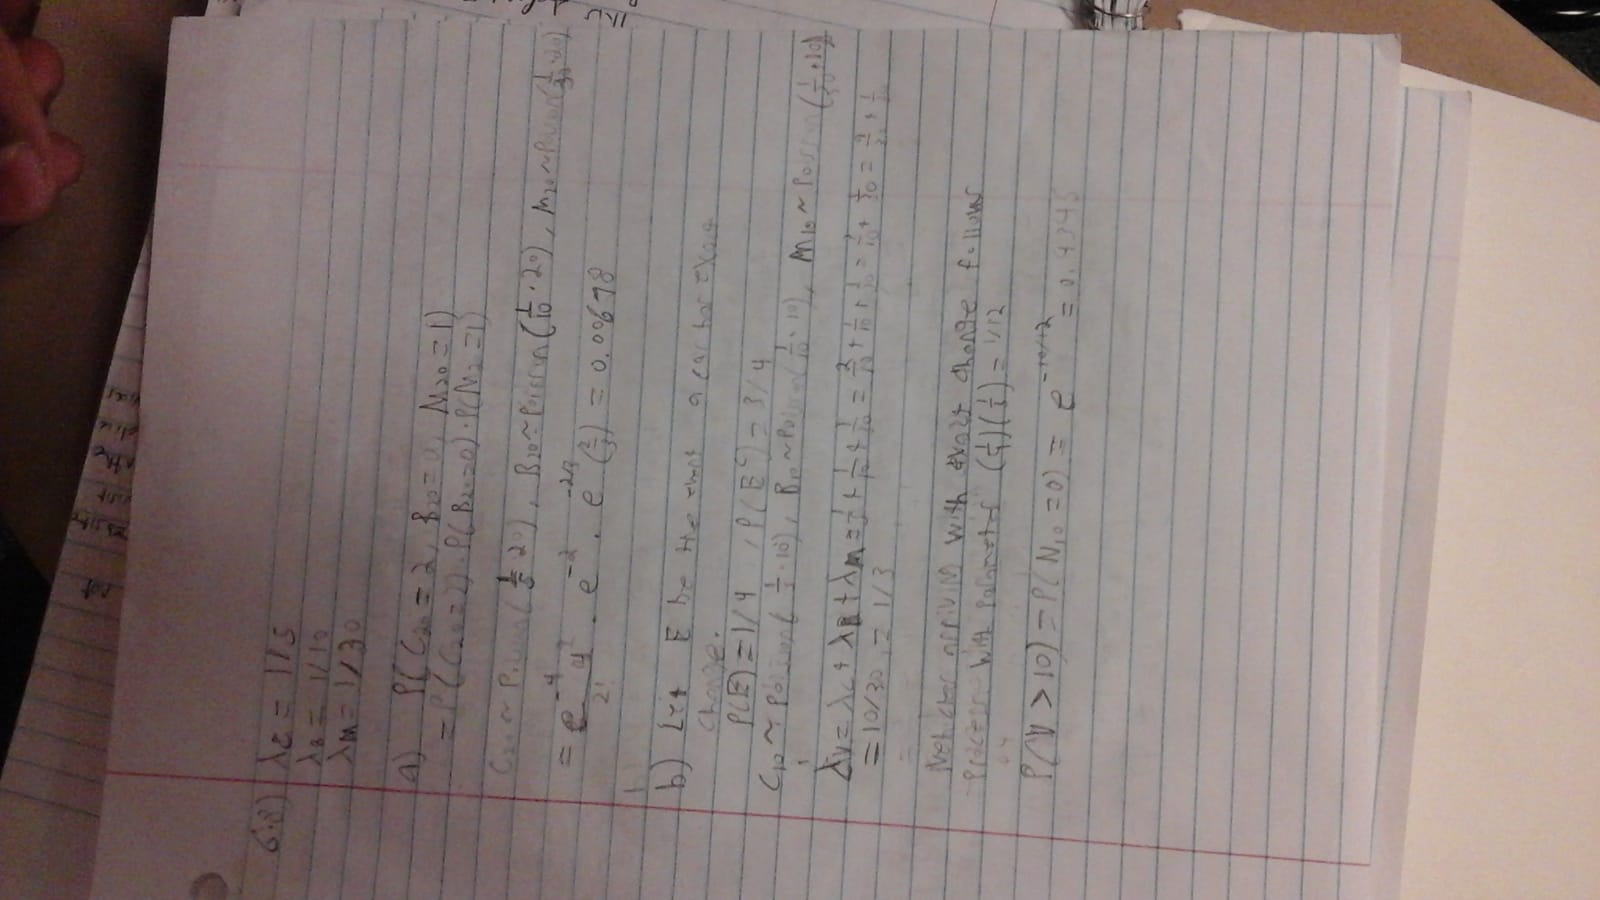 6.8) λc = 1/5
λB = 1/10
λM = 1/30
a) P(C20 = 2, B20 = 0, M20 = 1)
= P(C20=2) · P(B20=0) · P(M2 = 1)
C20 ~ Poisson(1/5 · 20), B20 ~ Poisson(1/10 · 20), M20 ~ Poisson(1/30 · 20)
= e^-4 4^2 / 2! · e^-2 · e^-2/3 (2/3) = 0.00678
b) Let E be the event a car has exact
change.
P(E) = 1/4, P(E^c) = 3/4
C10 ~ Poisson(1/5 · 10), B10 ~ Poisson(1/10 · 10), M10 ~ Poisson(1/30 · 10)
λV = λc + λB + λM = 1/5 + 1/10 + 1/30 = 2/10 + 1/10 + 1/30 = 3/10 + 1/30 = 9/30 + 1/30
= 10/30 = 1/3
=
Vehicles arriving with exact change follows
process with parameter (1/4)(1/3) = 1/12
P(V > 10) = P(N10 = 0) = e^-10/12 = 0.4345
not
the